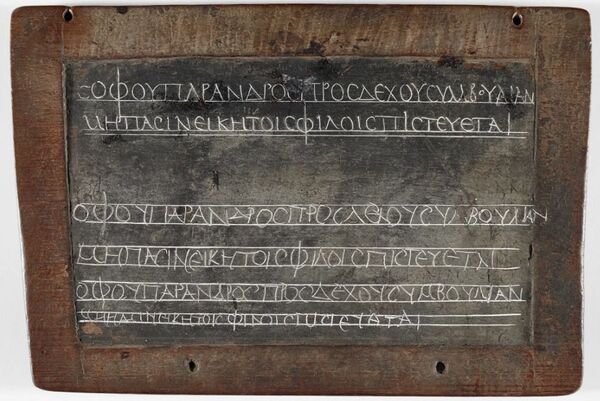 CΟΦΟΥΠΑΡΑΝΔΡΟCΠΡΟCΔΕΧΟΥCΥΜΒΟΥΛΙΑΝ
ΜΗΠΑCΙΝΕΙΚΗΤΟΙCΦΙΛΟΙCΠΙCΤΕΥΕΤΑΙ
ΟΦΟΥΠΑΡΑΝΔΡΟCΠΡΟCΔΕΧΟΥCΥΜΒΟΥΛΙΑΝ
ΜΗΠΑCΙΝΕΙΚΗΤΟΙCΦΙΛΟΙCΠΙCΤΕΥΕΤΑΙ
ΟΦΟΥΠΑΡΑΝΔΡΟCΠΡΟCΔΕΧΟΥCΥΜΒΟΥΛΙΑΝ
ΜΗΠΑCΙΝΕΙΚΗΤΟΙCΦΙΛΟΙCΠΙCΤΕΥΕΤΑΙ